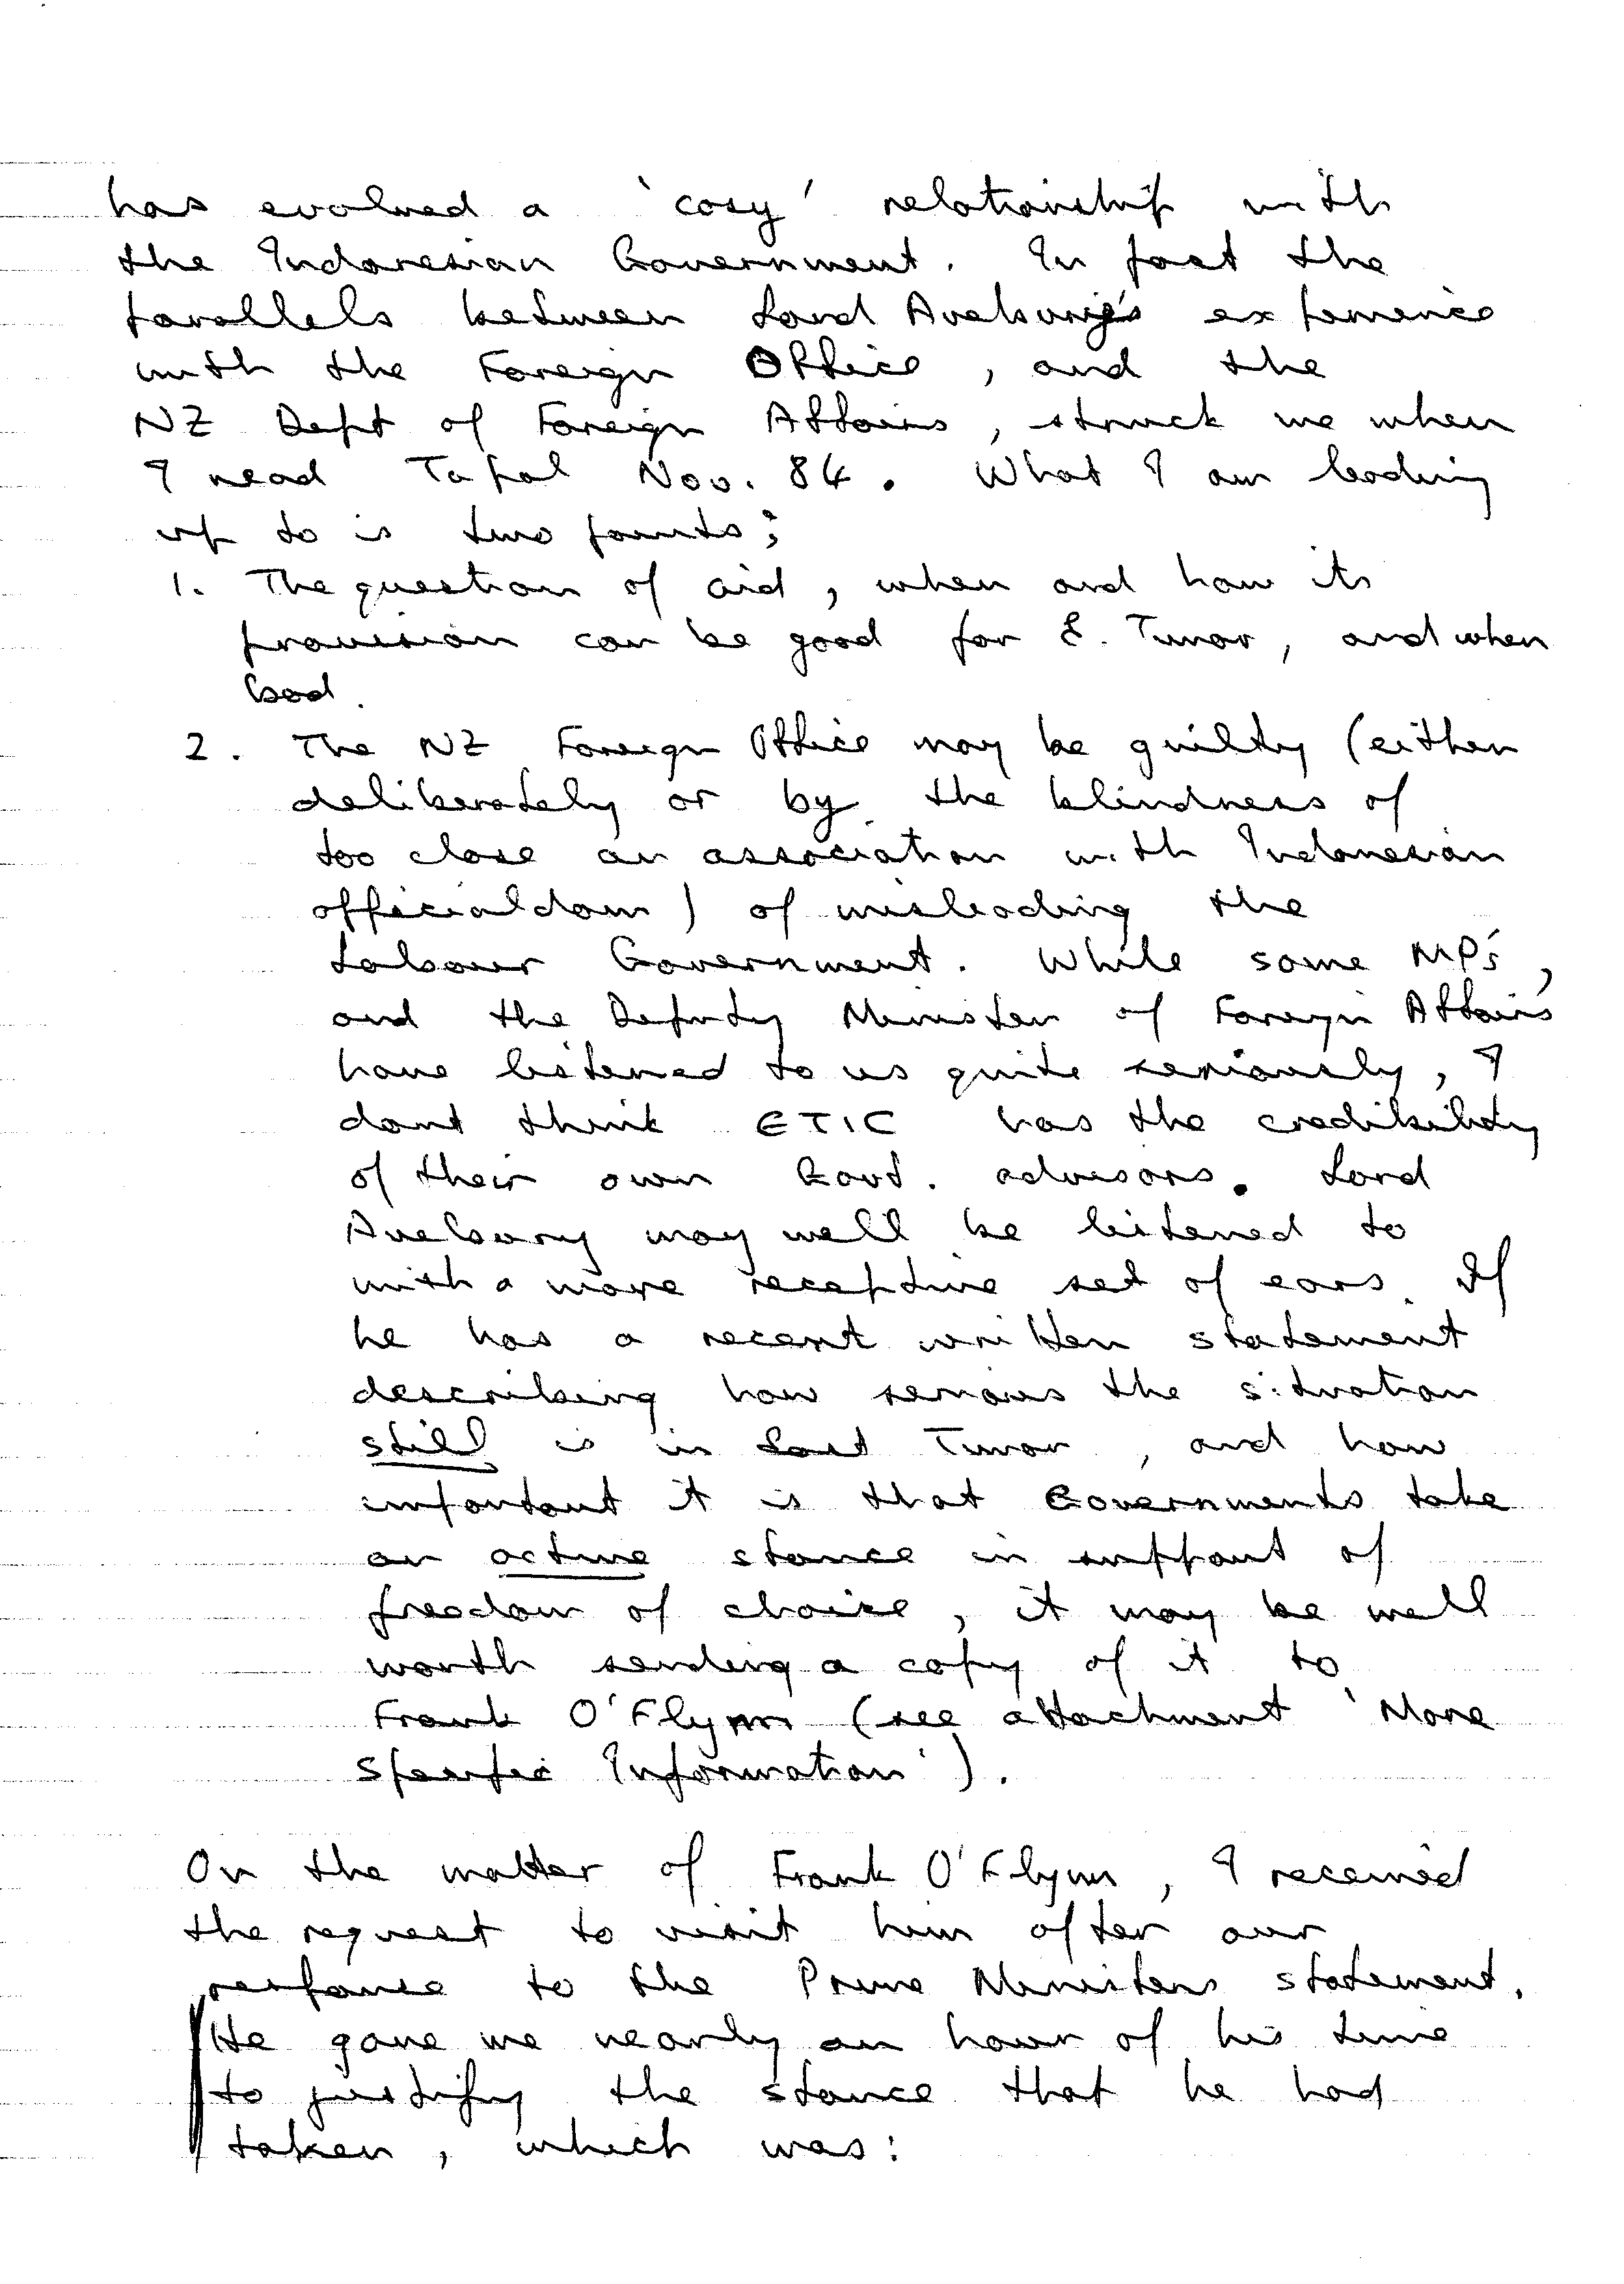 has evolved a 'cosy' relationship with
the Indonesian Government. In fact the
parallels between Lord Avebury's experience
with the Foreign Office, and the
NZ Dept of Foreign Affairs, struck me when
I read Tapol Nov. 84. What I am leading
up to is two points;
1. The question of aid, when and how its
provision can be good for E. Timor, and when
bad.
2. The NZ Foreign Office may be guilty (either
deliberately or by the blindness of
too close an association with Indonesian
officialdom) of misleading the
Labour Government. While some MP's,
and the Deputy Minister of Foreign Affairs
have listened to us quite seriously, I
dont think ETIC has the credibility
of their own Govt. advisors. Lord
Avebury may well be listened to
with a more receptive set of ears. If
he has a recent written statement
describing how serious the situation
still is in East Timor, and how
important it is that Governments take
an active stance in support of
freedom of choice, it may be well
worth sending a copy of it to
Frank O'Flynn (see attachment 'More
Specific Information').
On the matter of Frank O'Flynn, I received
the request to visit him after our
response to the Prime Ministers statement.
He gave me nearly an hour of his time
to justify the stance that he had
taken, which was: